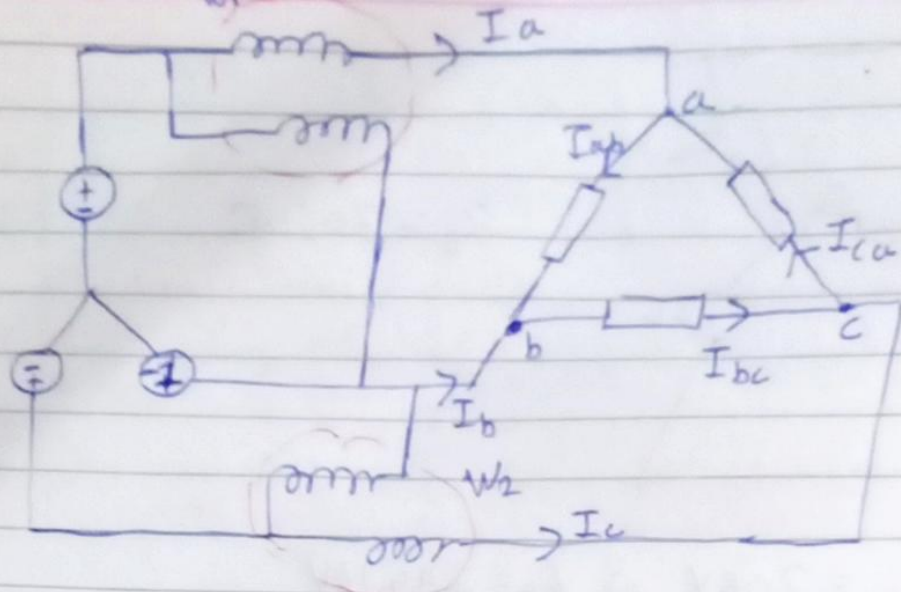 Ia
a
Iab
Ica
b
c
Ibc
Ib
W2
Ic